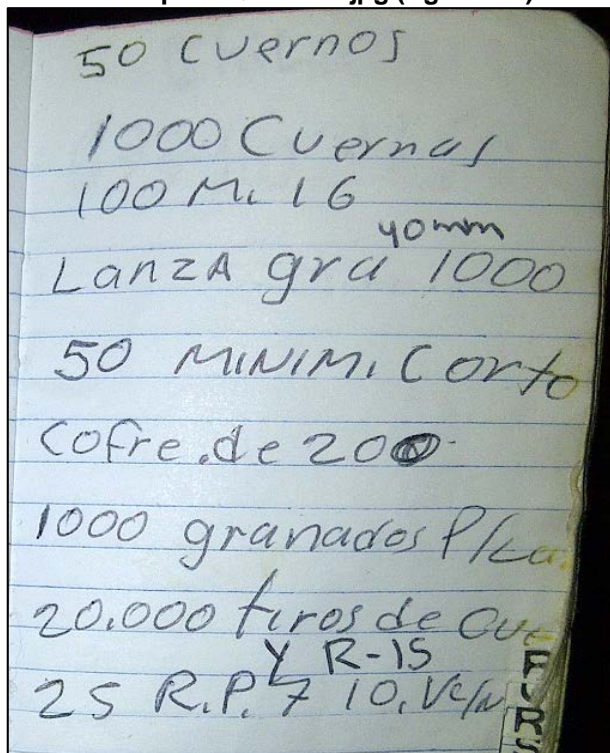 50 Cuernos
1000 Cuernas
100 M. 16
40mm
Lanza gra 1000
50 MINIMI Corto
Cofre de 200
1000 granados P/La
20.000 tiros de Cue
Y R-15
25 R.P. 7 10.